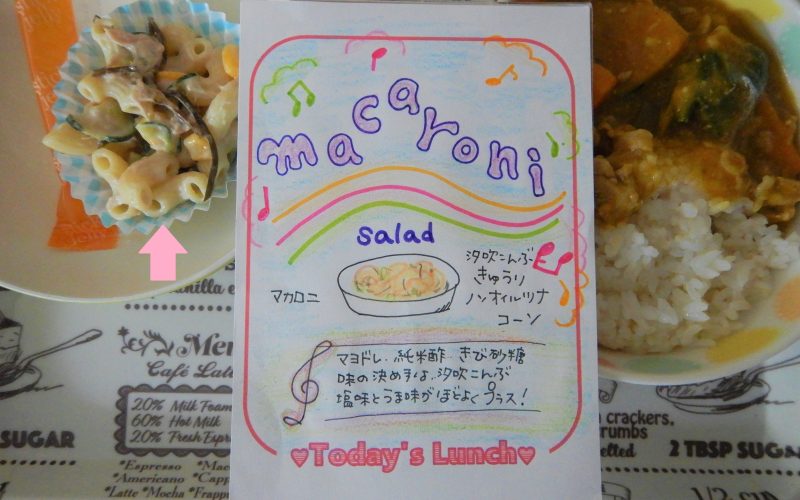 macaroni
salad
マカロニ
汐吹こんぶ
きゅうり
ノンオイルツナ
コーン
マヨドレ、純米酢、きび砂糖
味の決め手は、汐吹こんぶ
塩味とうま味がほどよくプラス!
Today's Lunch
Vanilla
Men
Café Late
20% Milk Foam
60% Hot Milk
20% Fresh Espr
*Espresso *Mac
*Americano *Capp
*Latte *Mocha *Frapp
SUGAR
crackers,
rumbs
elted
2 TBSP SUGAR
1/2